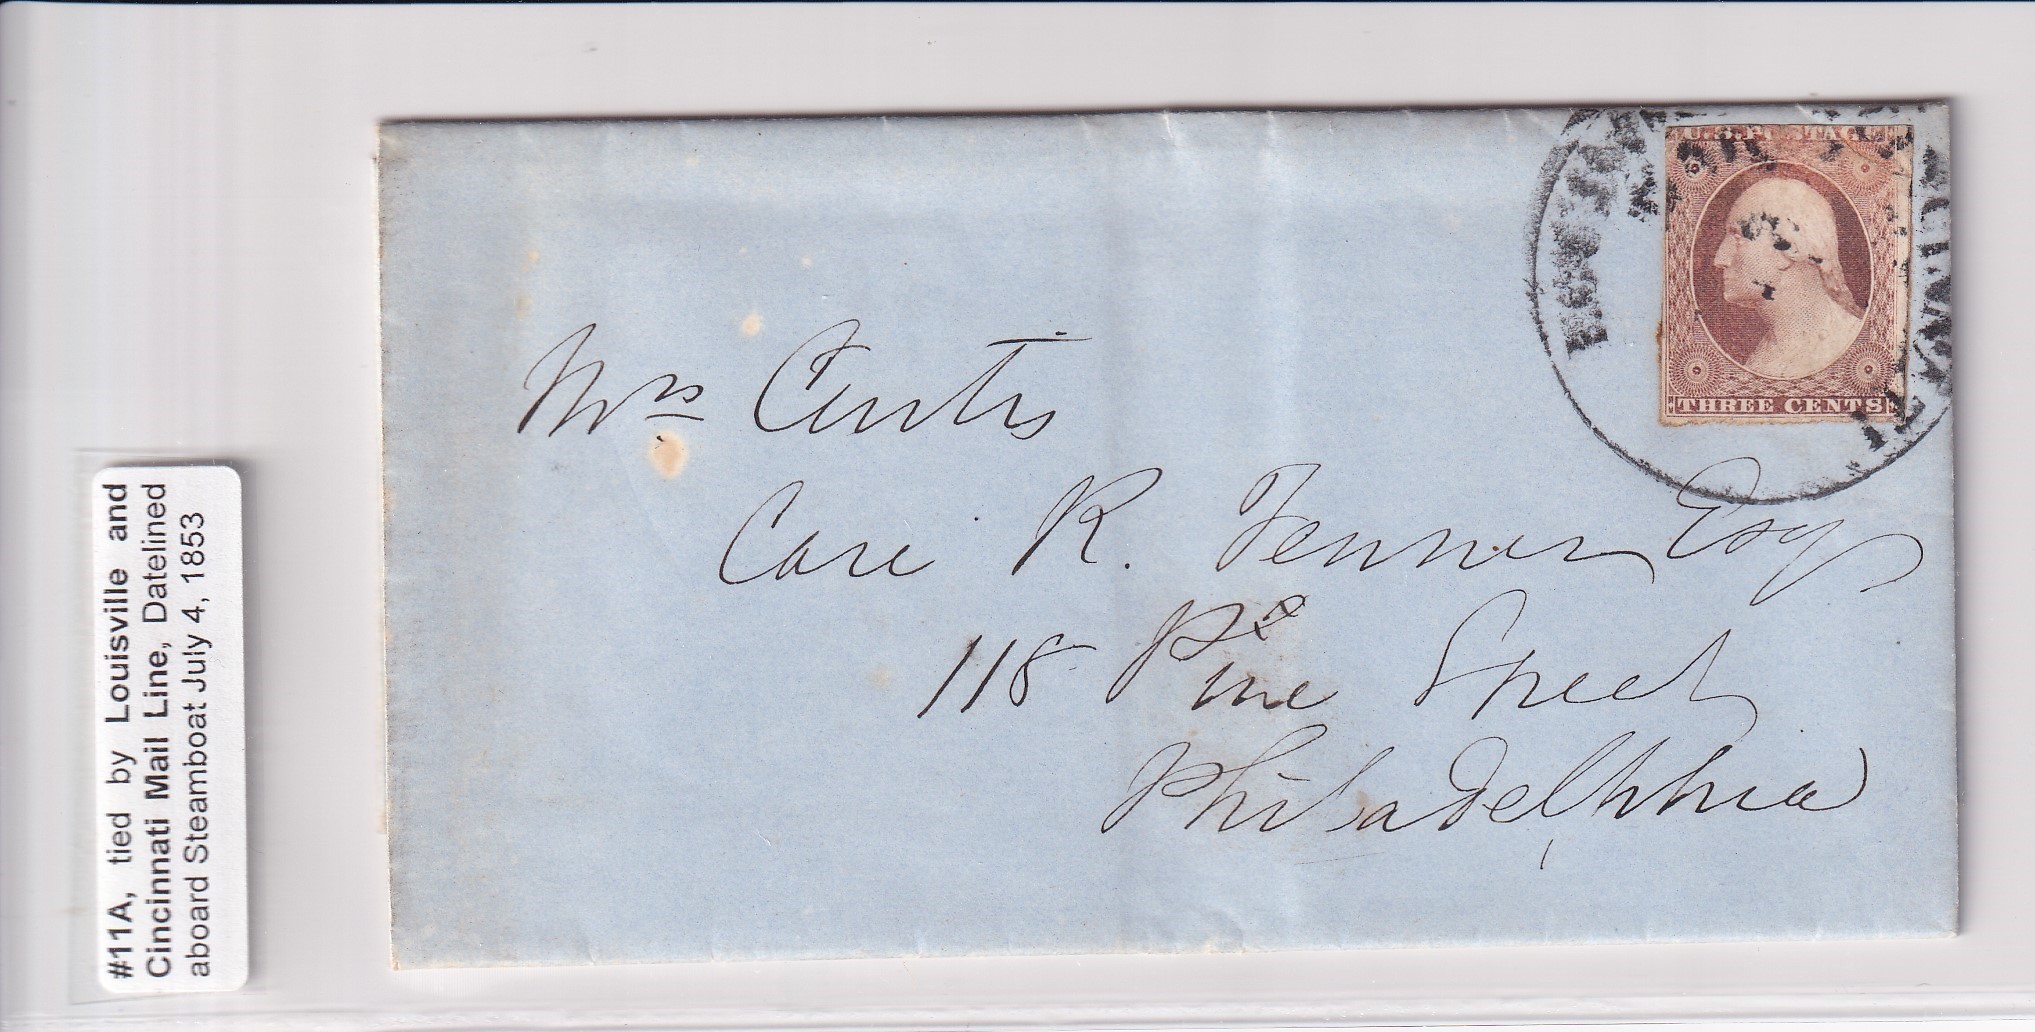 #11A, tied by Louisville and
Cincinnati Mail Line, Datelined
aboard Steamboat July 4, 1853
U.S. POSTAGE
THREE CENTS
Mrs Curtis
Care R. Fenner Esq
118 Pine Street
Philadelphia